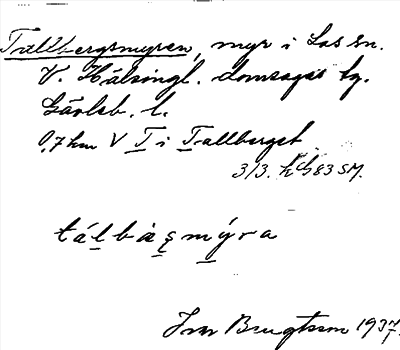 Tallbergsmyren, myr i Los sn.
V. Hälsingl. domsagas tg.
Gävleb. l.
0,7 km V T i Tallberget
3/3. 83 SM.
tálbàsmýra
Ivar Bengtsson 1937